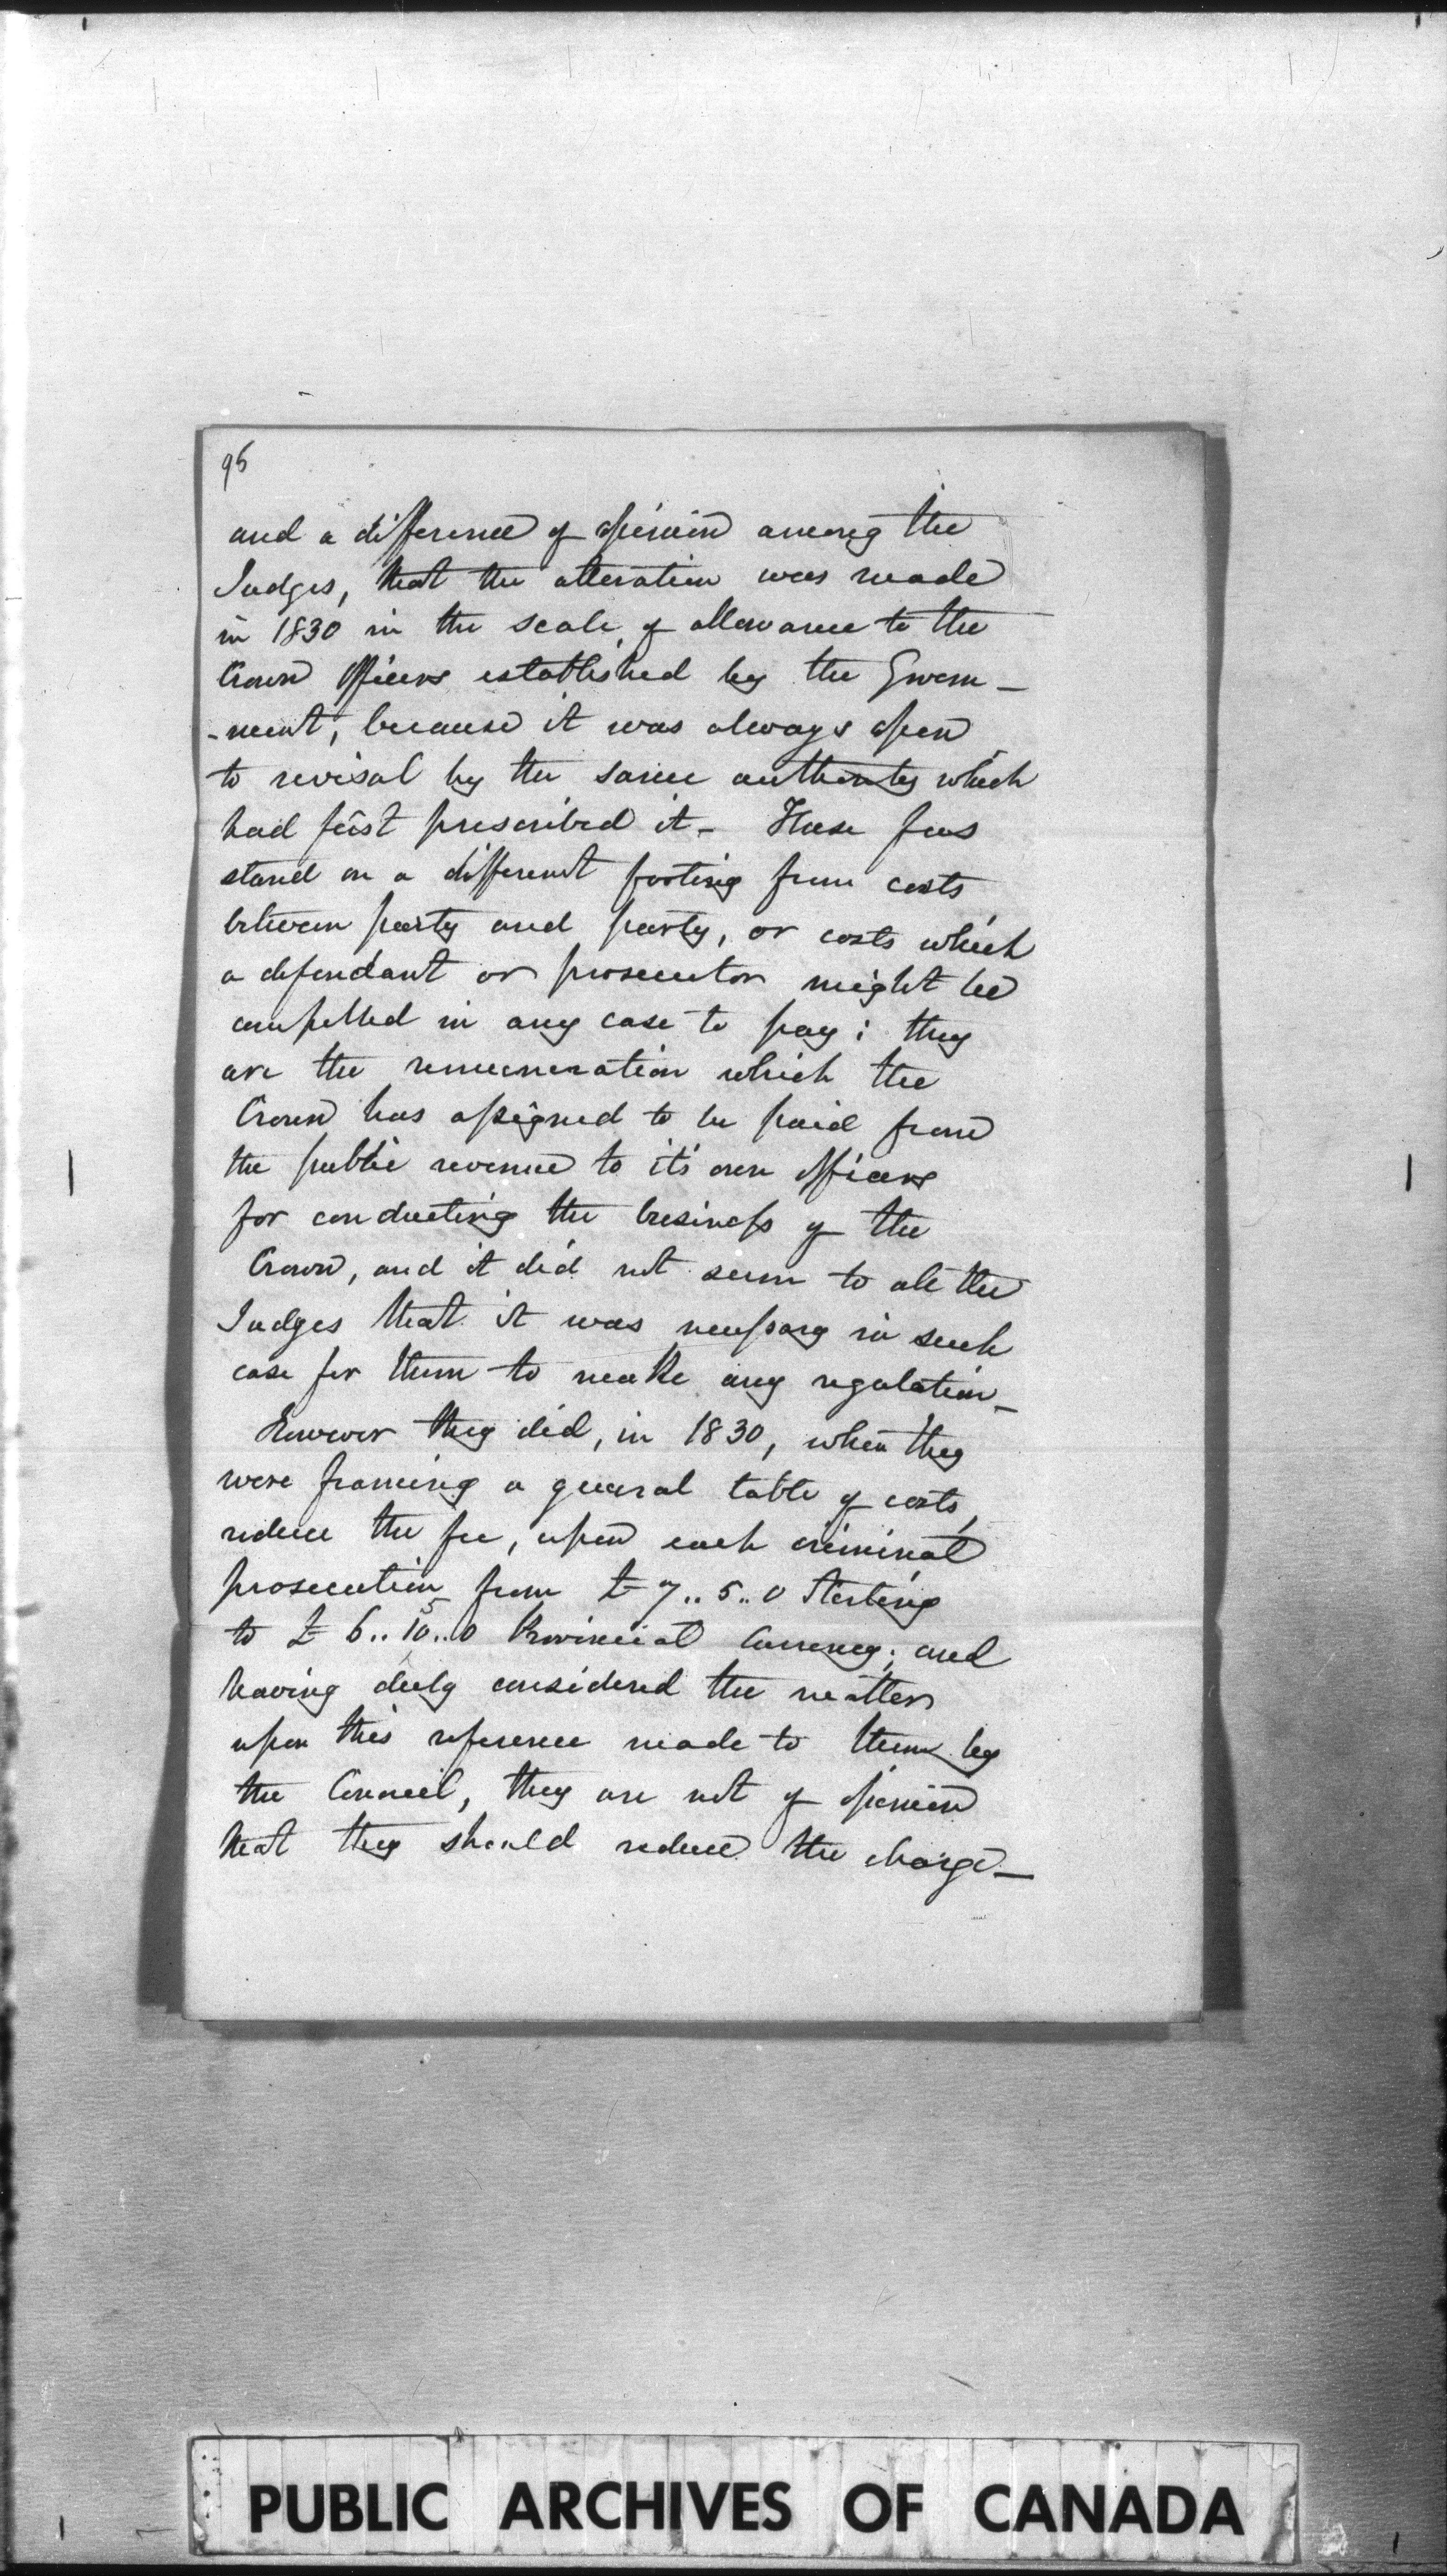 96
and a difference of opinion among the
Judges, that the alteration was made
in 1830 in the scale of allowance to the
Crown Officers established by the Govern-
-ment, because it was always open
to revisal by the same authority which
had first prescribed it - These fees
stand on a different footing from costs
between party and party, or costs which
a defendant or prosecutor might be
compelled in any case to pay; they
are the remuneration which the
Crown has assigned to be paid from
the public revenue to it's own officers
for conducting the business of the
Crown, and it did not seem to all the
Judges that it was necessary in such
case for them to make any regulation -
However they did, in 1830, when they
were framing a general table of costs,
reduce the fee, upon each criminal
prosecution from £7..5..0 Sterling
to £6..10..0 Provincial Currency; and
having duly considered the matter
upon this reference made to them by
the Council, they are not of opinion
that they should reduce the charge -
PUBLIC ARCHIVES OF CANADA